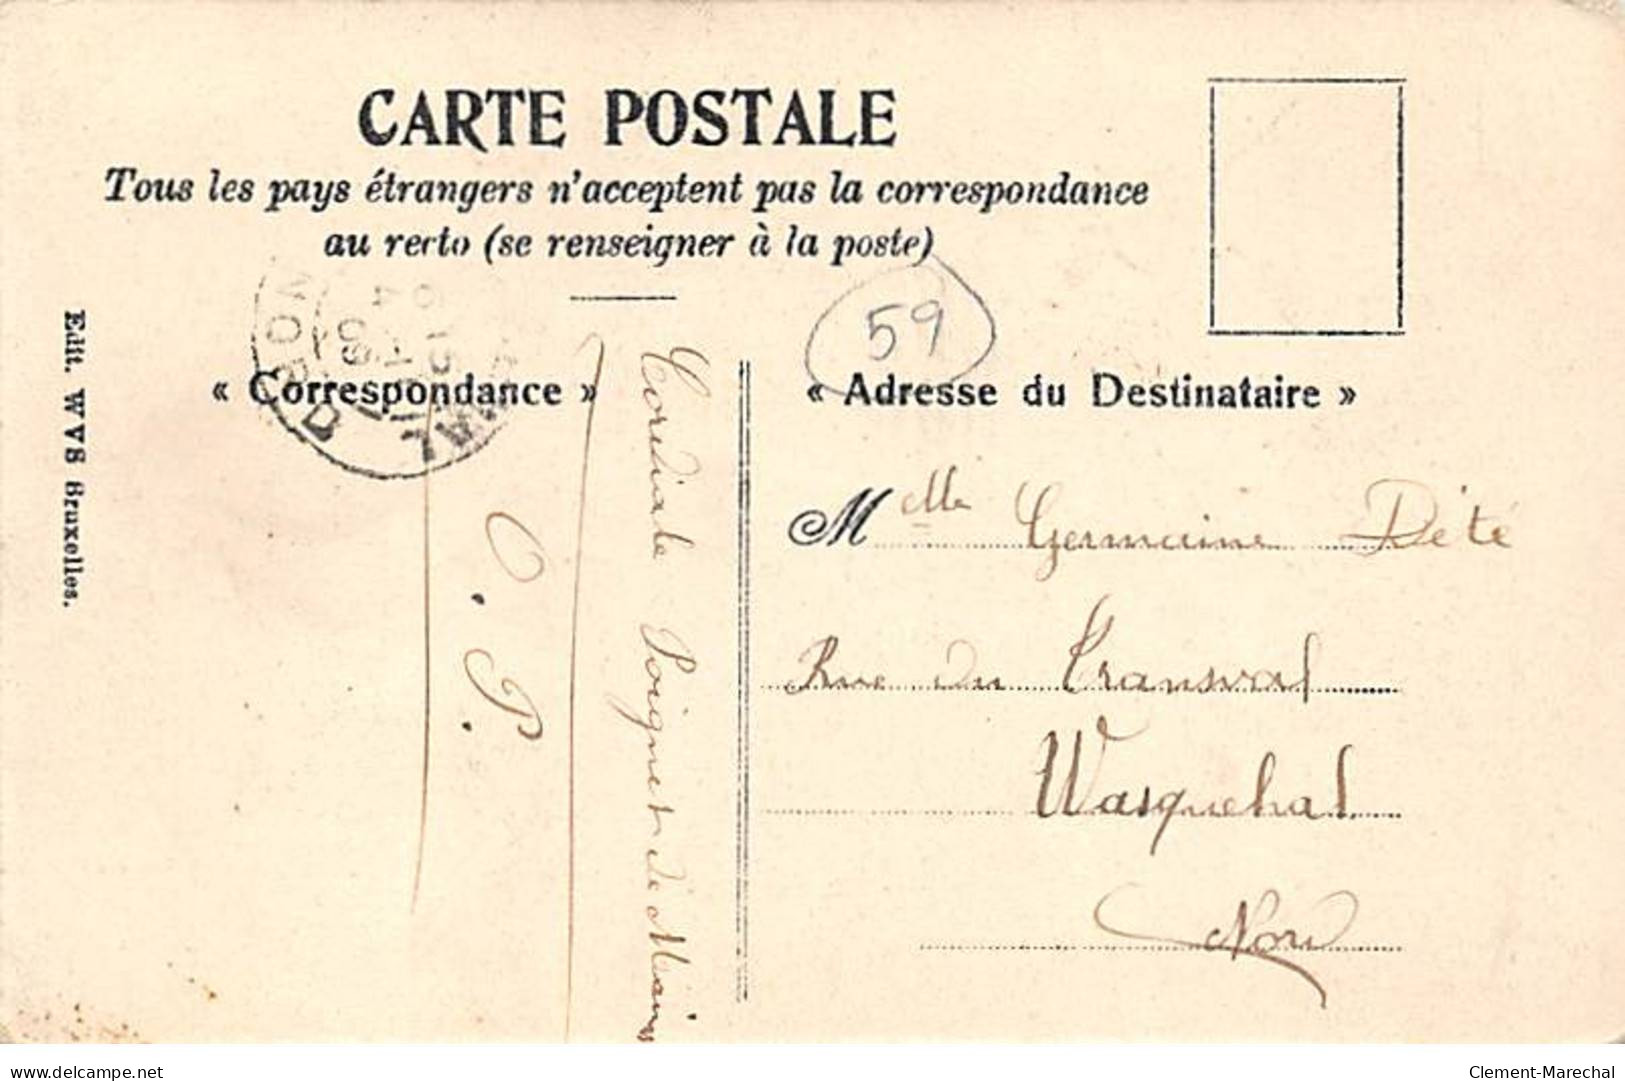 CARTE POSTALE
Tous les pays étrangers n'acceptent pas la correspondance
au recto (se renseigner à la poste)
59
« Correspondance »
« Adresse du Destinataire »
NORD
Edit. W V S Bruxelles.
Cordiale Poignée de Mains
O. P.
Mlle Germaine Dété
Rue du Transval
Wasquehal
Nord
delcampe.net
Clement-Marechal